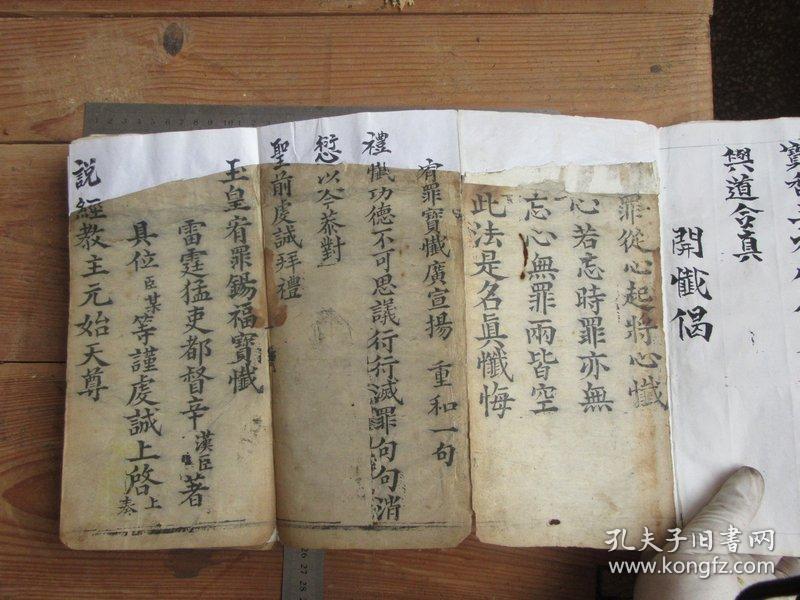 與道合真
開懴偈
罪從心起將心懴
心若忘時罪亦無
忘心無罪兩皆空
此法是名真懴悔
宥罪寶懴廣宣揚 重和一句
禮懴功德不可思議行行滅罪句句消
愆以今恭對
聖前虔誠拜禮
玉皇宥罪錫福寶懴
雷霆猛吏都督辛漢臣著
具位臣某等謹虔誠上啓上奏
説經教主元始天尊
孔夫子旧书网
www.kongfz.com